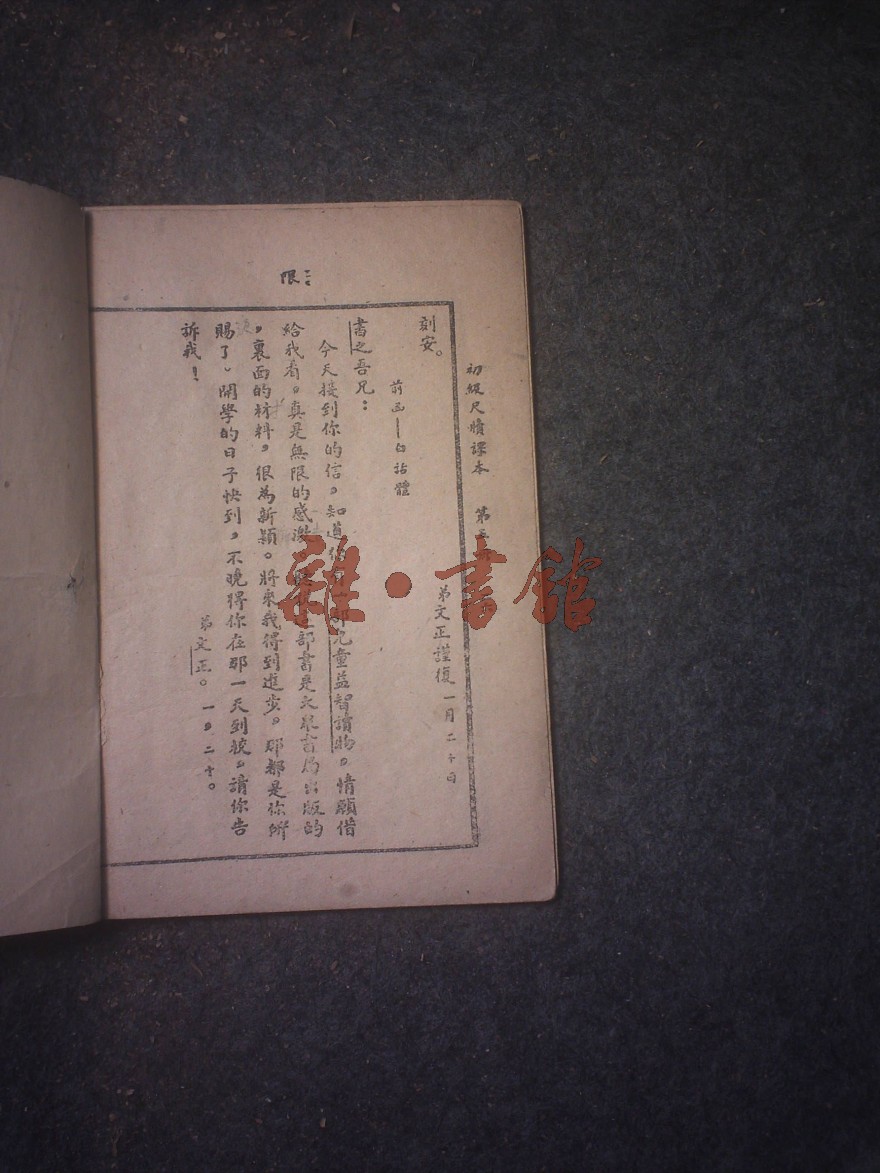 初級尺牘課本 第五
限
刻安。
弟文正謹復 一月二十日
前函——白話體
書之吾兄：
今天接到你的信，知道你有一部兒童益智讀物。情願借
給我看。真是無限的感激 部書是大衆書局出版的
，裏面的材料，很為新穎。將來我得到進步。那都是你所
賜了。開學的日子快到，不曉得你在那一天到校。請你告
訴我！
弟文正。一，二十。
雜·書館